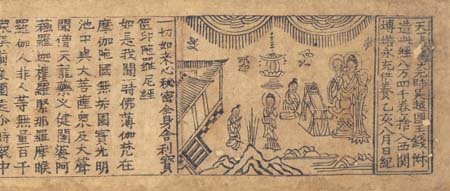 天下兵馬大元帥吳越國王錢俶
造此經八萬四千卷捨入西關
塼塔永充供養乙亥八月日紀
一切如來心秘密全身舍利寶
篋印陀羅尼經
如是我聞一時佛薄伽梵在
摩伽陀國無垢園寶光明
池中與大菩薩衆及大聲
聞僧天龍藥叉健闥婆阿
蘓羅迦樓羅緊那羅摩睺
羅伽人非人等無量百千